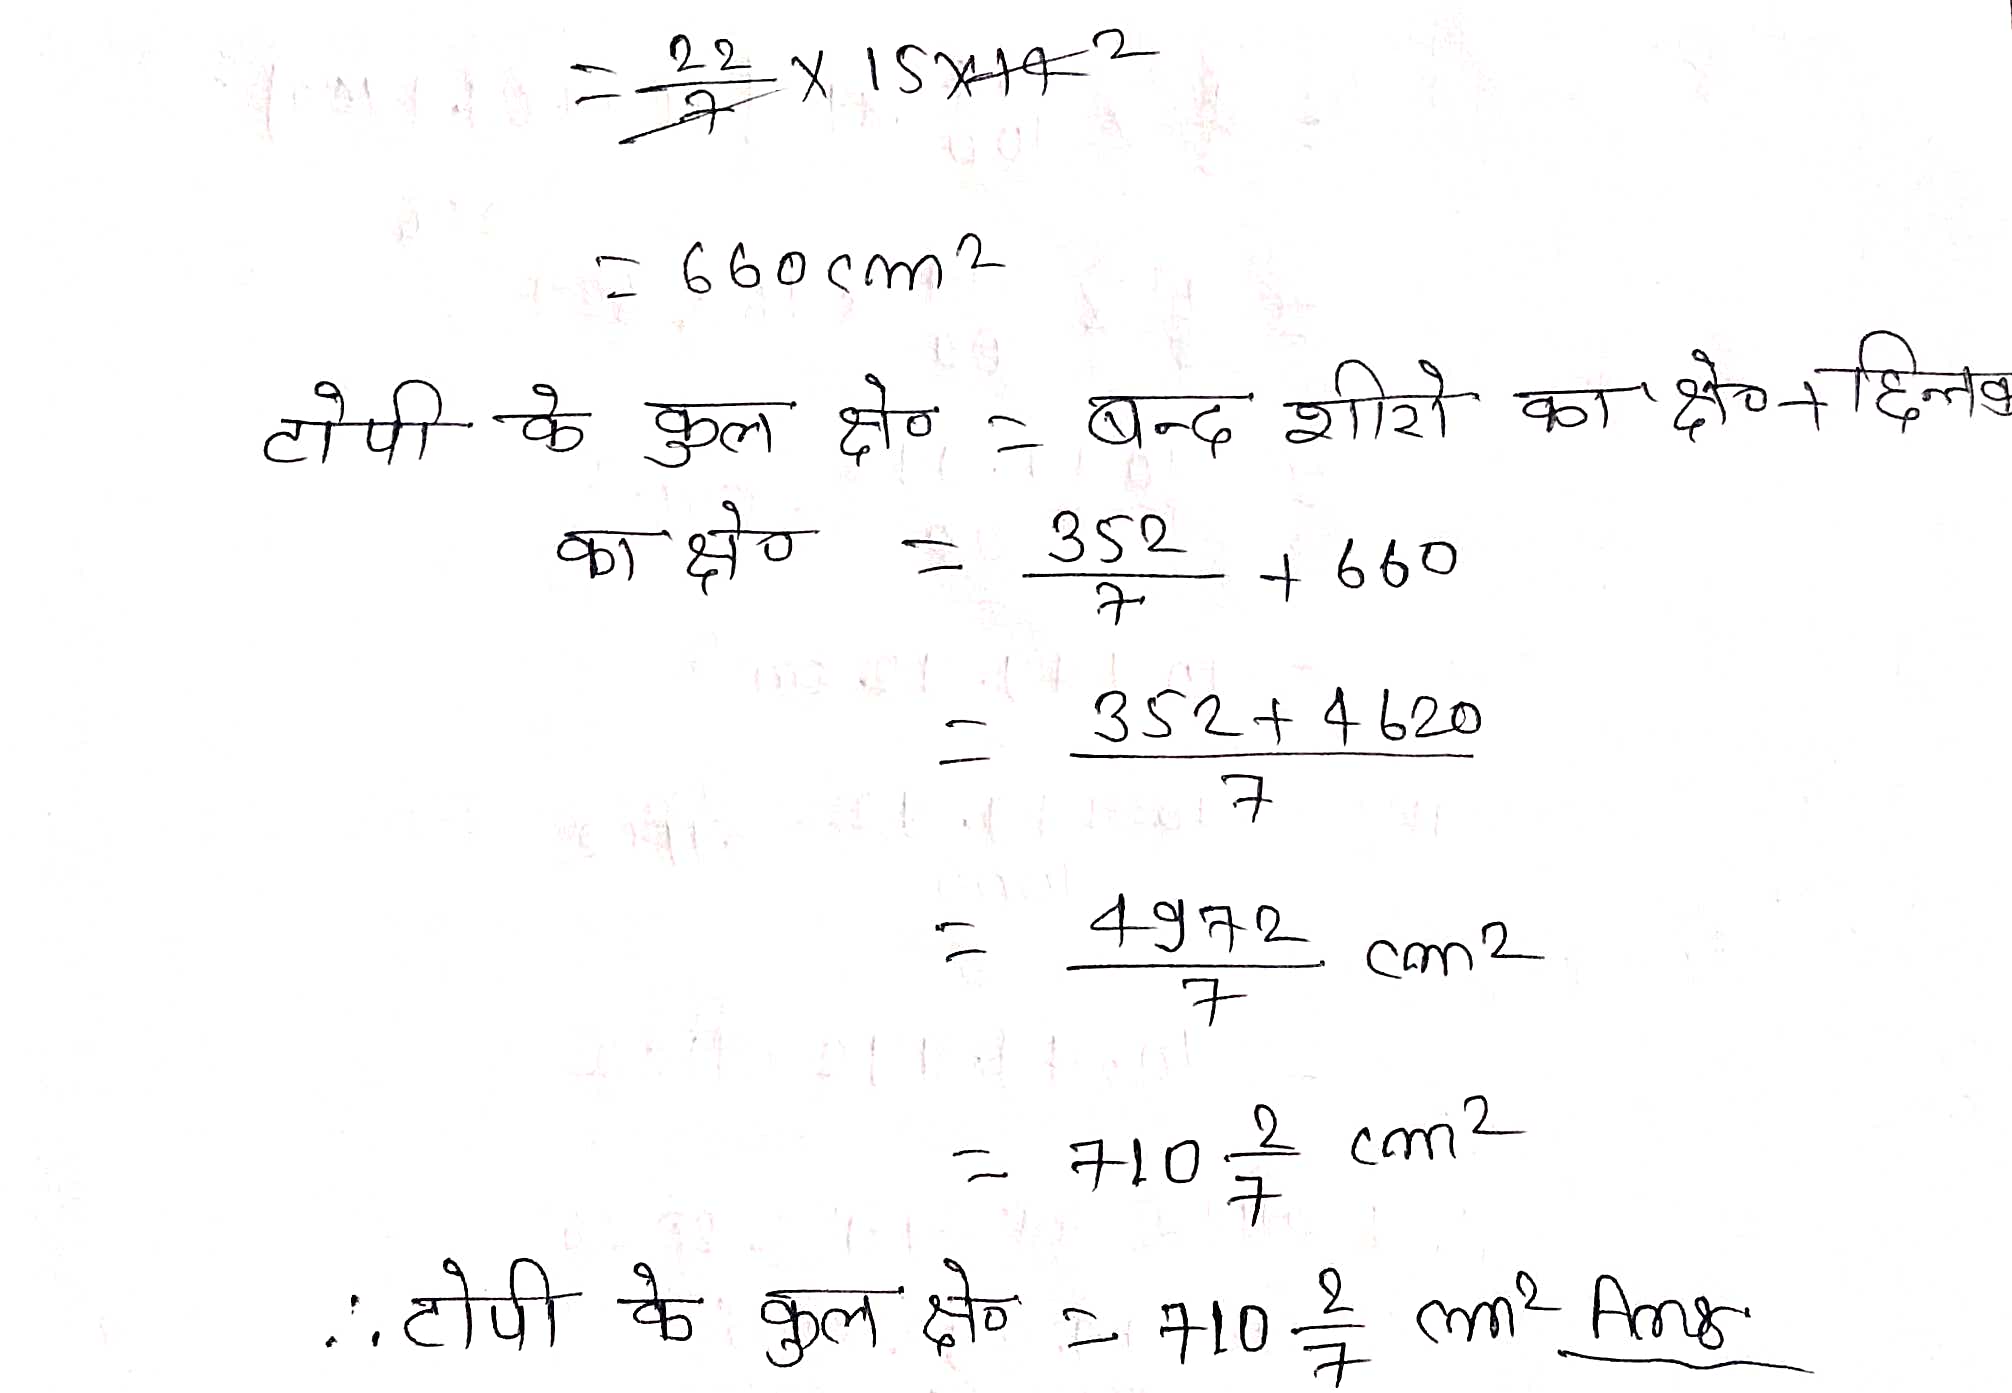 = 22/7 × 15 × 14 2
= 660 cm²
टोपी के कुल क्षे० = बन्द शीरो का क्षे० +
का क्षे० = 352/7 + 660
= 352 + 4620 / 7
= 4972/7 cm²
= 710 2/7 cm²
∴ टोपी के कुल क्षे० = 710 2/7 cm² Ans